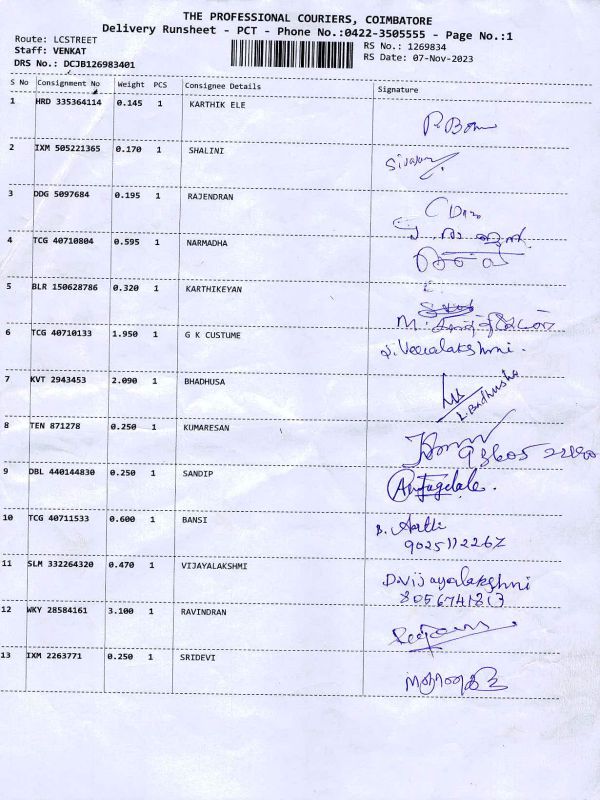 THE PROFESSIONAL COURIERS, COIMBATORE
Delivery Runsheet - PCT - Phone No.:0422-3505555 - Page No.:1
Route: LCSTREET
RS No.: 1269834
Staff: VENKAT
RS Date: 07-Nov-2023
DRS No.: DCJB126983401
S No Consignment No Weight PCS Consignee Details Signature
1 HRD 335364114 0.145 1 KARTHIK ELE
2 IXM 505221365 0.170 1 SHALINI
3 DDG 5097684 0.195 1 RAJENDRAN
4 TCG 40710804 0.595 1 NARMADHA
5 BLR 150628786 0.320 1 KARTHIKEYAN
6 TCG 40710133 1.950 1 G K CUSTUME
J. Veeralakshmi.
7 KVT 2943453 2.090 1 BHADHUSA
L. Badhusha
8 TEN 871278 0.250 1 KUMARESAN
9 DBL 440144830 0.250 1 SANDIP
10 TCG 40711533 0.600 1 BANSI
B. Aarthi
9025112267
11 SLM 332264320 0.470 1 VIJAYALAKSHMI
D.vijayalakshmi
12 WKY 28584161 3.100 1 RAVINDRAN
13 IXM 2263771 0.250 1 SRIDEVI